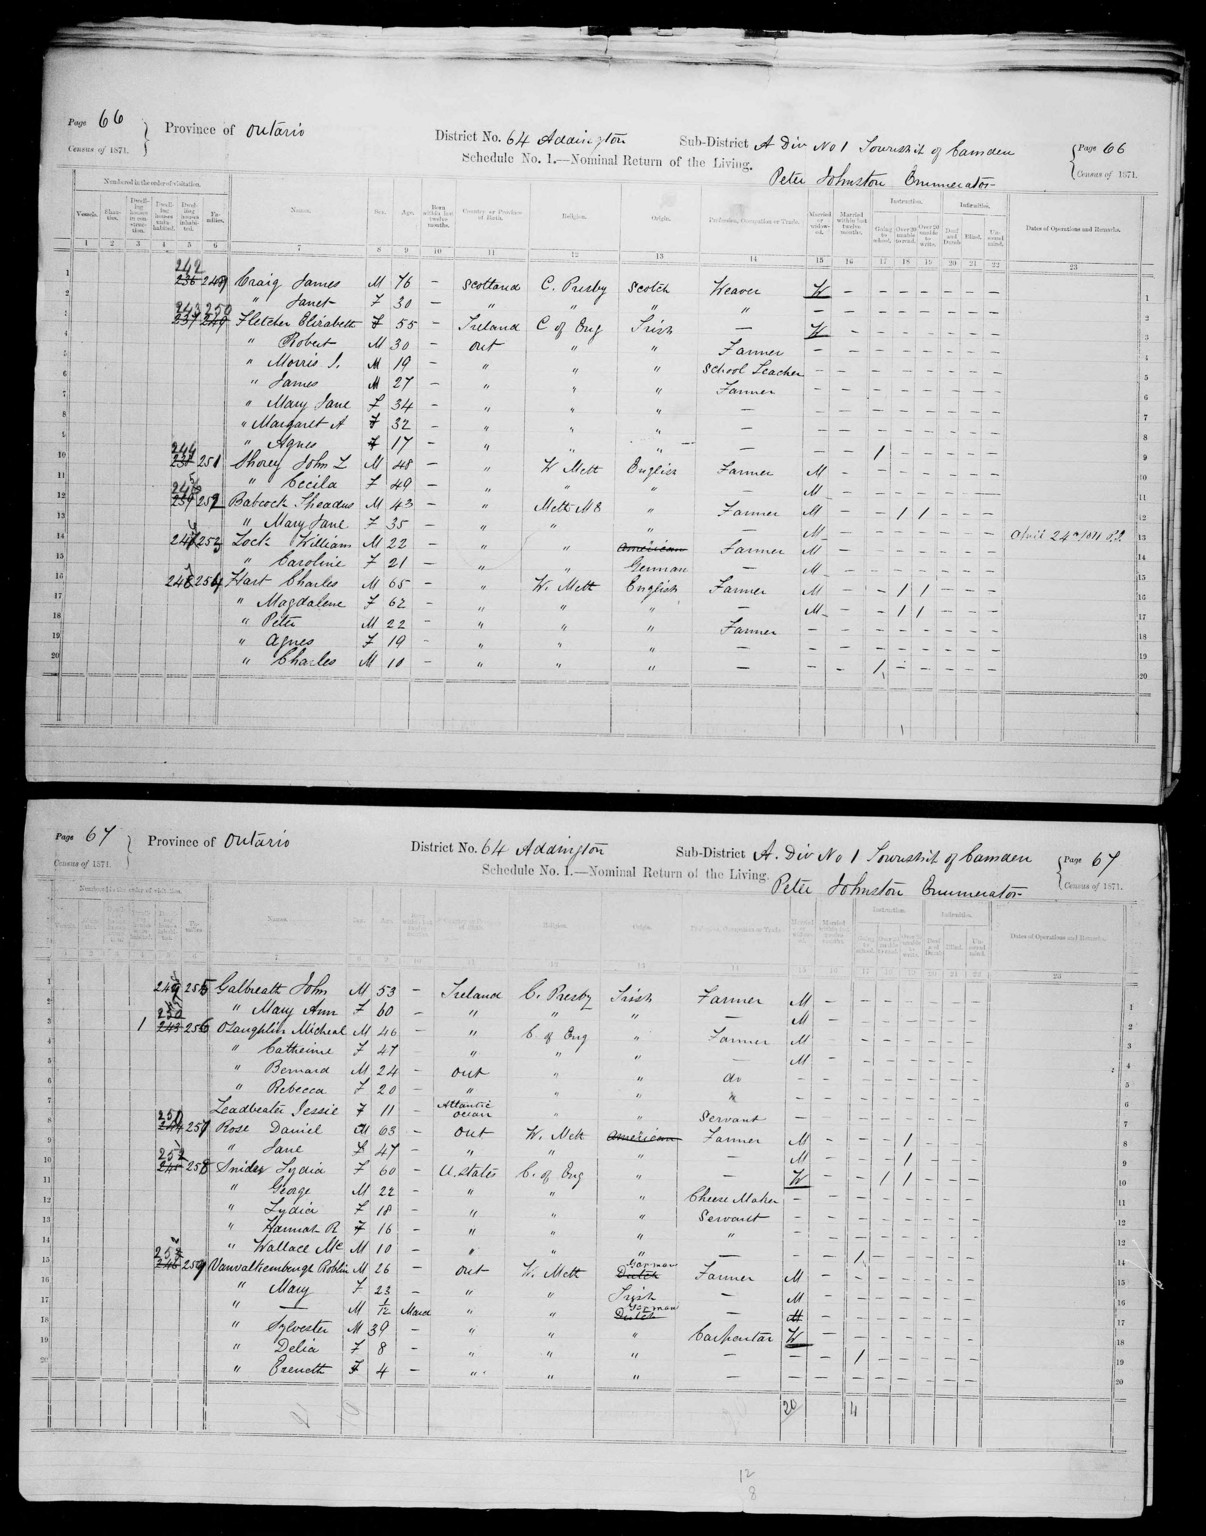 Page 66 Province of Ontario District No. 64 Addington Sub-District A Div No 1 Township of Camden Page 66
Census of 1871. Schedule No. 1.—Nominal Return of the Living. Peter Johnston Enumerator Census of 1871.
Numbered in the order of visitation. Instruction. Infirmities.
Vessels. Shan-ties. Dwell-ing houses in con-struc-tion. Dwell-ing houses uninha-bited. Dwel-lings inhabi-ted. Fa-milies. Names. Sex. Age. Born within last twelve months. Country or Province of Birth. Religion. Origin. Profession, Occupation or Trade. Married or widow-ed. Married within last twelve months. Going to school. Over 20 unable to read. Over 20 unable to write. Deaf and Dumb. Blind. Un-sound mind. Dates of Operations and Remarks.
1 2 3 4 5 6 7 8 9 10 11 12 13 14 15 16 17 18 19 20 21 22 23
1 242 236 249 Craig James M 76 – Scotland C. Presby Scotch Weaver W – – – – – – – 1
2 " Janet F 30 – " " " " – – – – – – – – 2
3 243 250 237 249 Fletcher Elizabeth F 55 – Ireland C of Eng Irish — W – – – – – – – 3
4 " Robert M 30 – Ont " " Farmer – – – – – – – – 4
5 " Morris J. M 19 – " " " School Teacher – – – – – – – – 5
6 " James M 27 – " " " Farmer – – – – – – – – 6
7 " Mary Jane F 34 – " " " — – – – – – – – – 7
8 " Margaret A F 32 – " " " — – – – – – – – – 8
9 " Agnes F 17 – " " " — – – 1 – – – – – 9
10 244 251 Shorey John L M 48 – " W Meth English Farmer M – – – – – – – 10
11 " Cecila F 49 – " " " — M – – – – – – – 11
12 252 Babcock Theadus M 43 – " Meth M E " Farmer M – – 1 1 – – – 12
13 " Mary Jane F 35 – " " " — M – – – – – – – 13
14 253 Lock William M 22 – " " American Farmer M – – – – – – – 14
15 " Caroline F 21 – " " German — M – – – – – – – 15
16 254 Hart Charles M 65 – " W. Meth English Farmer M – – 1 1 – – – 16
17 " Magdalene F 62 – " " " — M – – 1 1 – – – 17
18 " Peter M 22 – " " " Farmer – – – – – – – – 18
19 " Agnes F 19 – " " " — – – – – – – – – 19
20 " Charles M 10 – " " " — – – 1 – – – – – 20
Page 67 Province of Ontario District No. 64 Addington Sub-District A. Div No 1 Township of Camden Page 67
Census of 1871. Schedule No. 1.—Nominal Return of the Living. Peter Johnston Enumerator Census of 1871.
Numbered in the order of visitation. Instruction. Infirmities.
Names. Religion. Origin. Profession, Occupation or Trade. Going to school. Blind. Dates of Operations and Remarks.
1 255 Galbreath John M 53 – Ireland C. Presby Irish Farmer M – – – – – – – 1
2 " Mary Ann F 60 – " " " — M – – – – – – – 2
3 1 250 243 256 OLaughlin Micheal M 46 – " C of Eng " Farmer M – – – – – – – 3
4 " Catherine F 47 – " " " — M – – – – – – – 4
5 " Bernard M 24 – Ont " " do – – – – – – – – 5
6 " Rebecca F 20 – " " " " – – – – – – – – 6
7 Leadbeater Jessie F 11 – Atlantic Ocean " " Servant – – – – – – – – 7
8 244 257 Rose Daniel M 63 – Ont W. Meth American Farmer M – – – 1 – – – 8
9 " Jane F 47 – " " " — M – – – 1 – – – 9
10 252 245 258 Snider Lydia F 60 – U. States C. of Eng " — W – – 1 1 – – – 10
11 " George M 22 – " " " Cheese Maker – – – – – – – – 11
12 " Lydia F 18 – " " " Servant – – – – – – – – 12
13 " Hannah R F 16 – " " " " – – – – – – – – 12
14 " Wallace Mc M 10 – " " " — – – 1 – – – – – 14
15 246 259 Vanvalkenburgh Roblin M 26 – Ont W. Meth German Dutch Farmer M – – – – – – – 15
16 " Mary F 23 – " " Irish — M – – – – – – – 16
17 " — M 1/12 March " " German Dutch — M – – – – – – – 17
18 " Sylvester M 39 – " " " Carpentar W – – – – – – – 18
19 " Delia F 8 – " " " — – – 1 – – – – – 19
20 " F 4 – " " " — – – – – – – – – 20
20 4
12
8